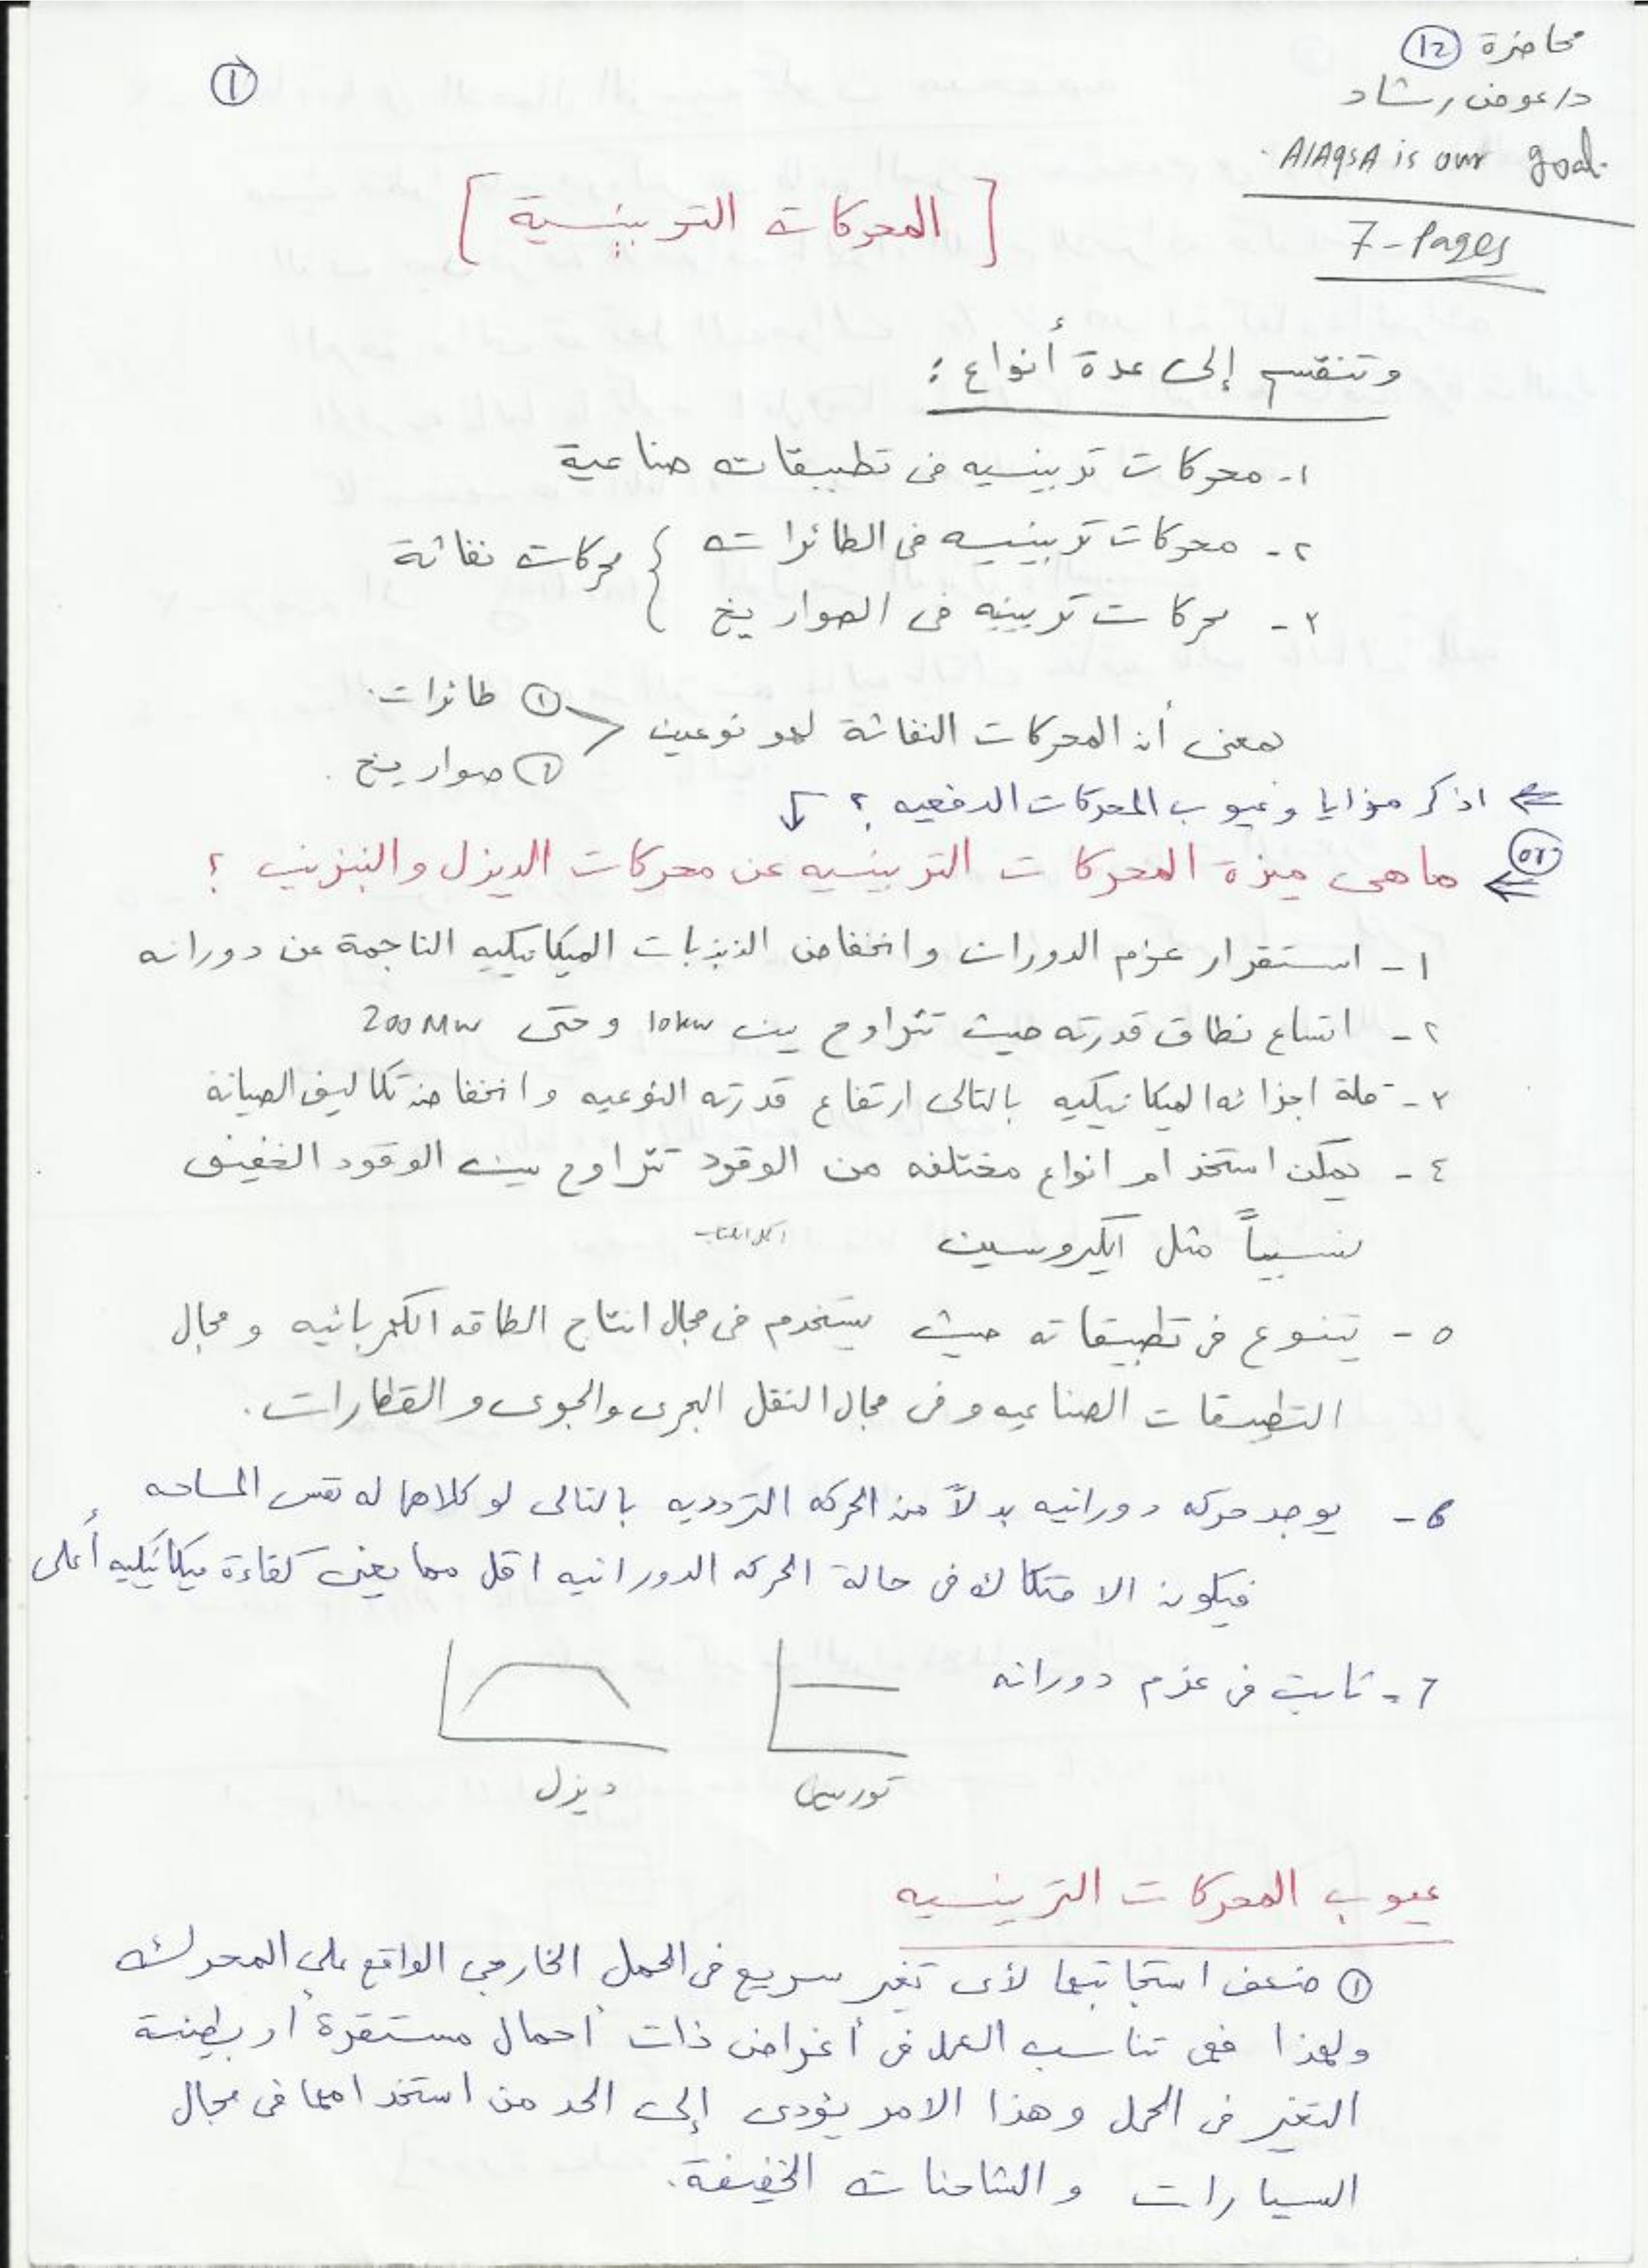 محاضرة (12)
د/عوض رشاد
AlAqsA is our goal.
7-Pages
(1)
[المحركات التربينسية]
وتنقسم إلى عدة أنواع :
١- محركات تربينسيه فى تطبيقات صناعية
٢- محركات تربينيسه فى الطائرات } محركات نفاثة
٣- محركات تربينيه فى الصواريخ
بمعنى أن المحركات النفاثة لهو نوعين < (١) طائرات
(٢) صواريخ.
اذكر مزايا وعيوب المحركات الدفعيه ؟
(or) ما هى ميزة المحركات التربينسيه عن محركات الديزل والبنزين ؟
١- استقرار عزم الدوران وانخفاض الذبذبات الميكانيكيه الناجمة عن دورانه
٢- اتساع نطاق قدرته حيث تتراوح بين 10kw وحتى 200Mw
٣- قلة اجزائه الميكانيكيه بالتالى ارتفاع قدرته النوعيه وانخفاض تكاليف الصيانة
٤- يمكن استخدام انواع مختلفه من الوقود تتراوح بين الوقود الخفيف
نسبياً مثل الكيروسين
٥- يتنوع فى تطبيقاته حيث يستخدم فى مجال انتاج الطاقه الكهربائيه ومجال
التطبيقات الصناعيه وفى مجال النقل البحرى والجوى والقطارات.
6- يوجد حركه دورانيه بدلاً من الحركه الترددیه بالتالى لو كلاهما له نفس المساحه
فيكون الاحتكاك فى حالة الحركه الدورانيه اقل مما يعنى كفاءة ميكانيكيه أعلى
7- ثابت فى عزم دورانه
ديزل
عيوب المحركات التربينسيه
(١) ضعف استجابتها لأى تغير سريع فى الحمل الخارجى الواقع على المحرك
ولهذا فهى تناسب العمل فى أغراض ذات أحمال مستقرة أو بطيئة
التغير فى الحمل وهذا الامر يؤدى إلى الحد من استخدامها فى مجال
السيارات والشاحنات الخفيفة.